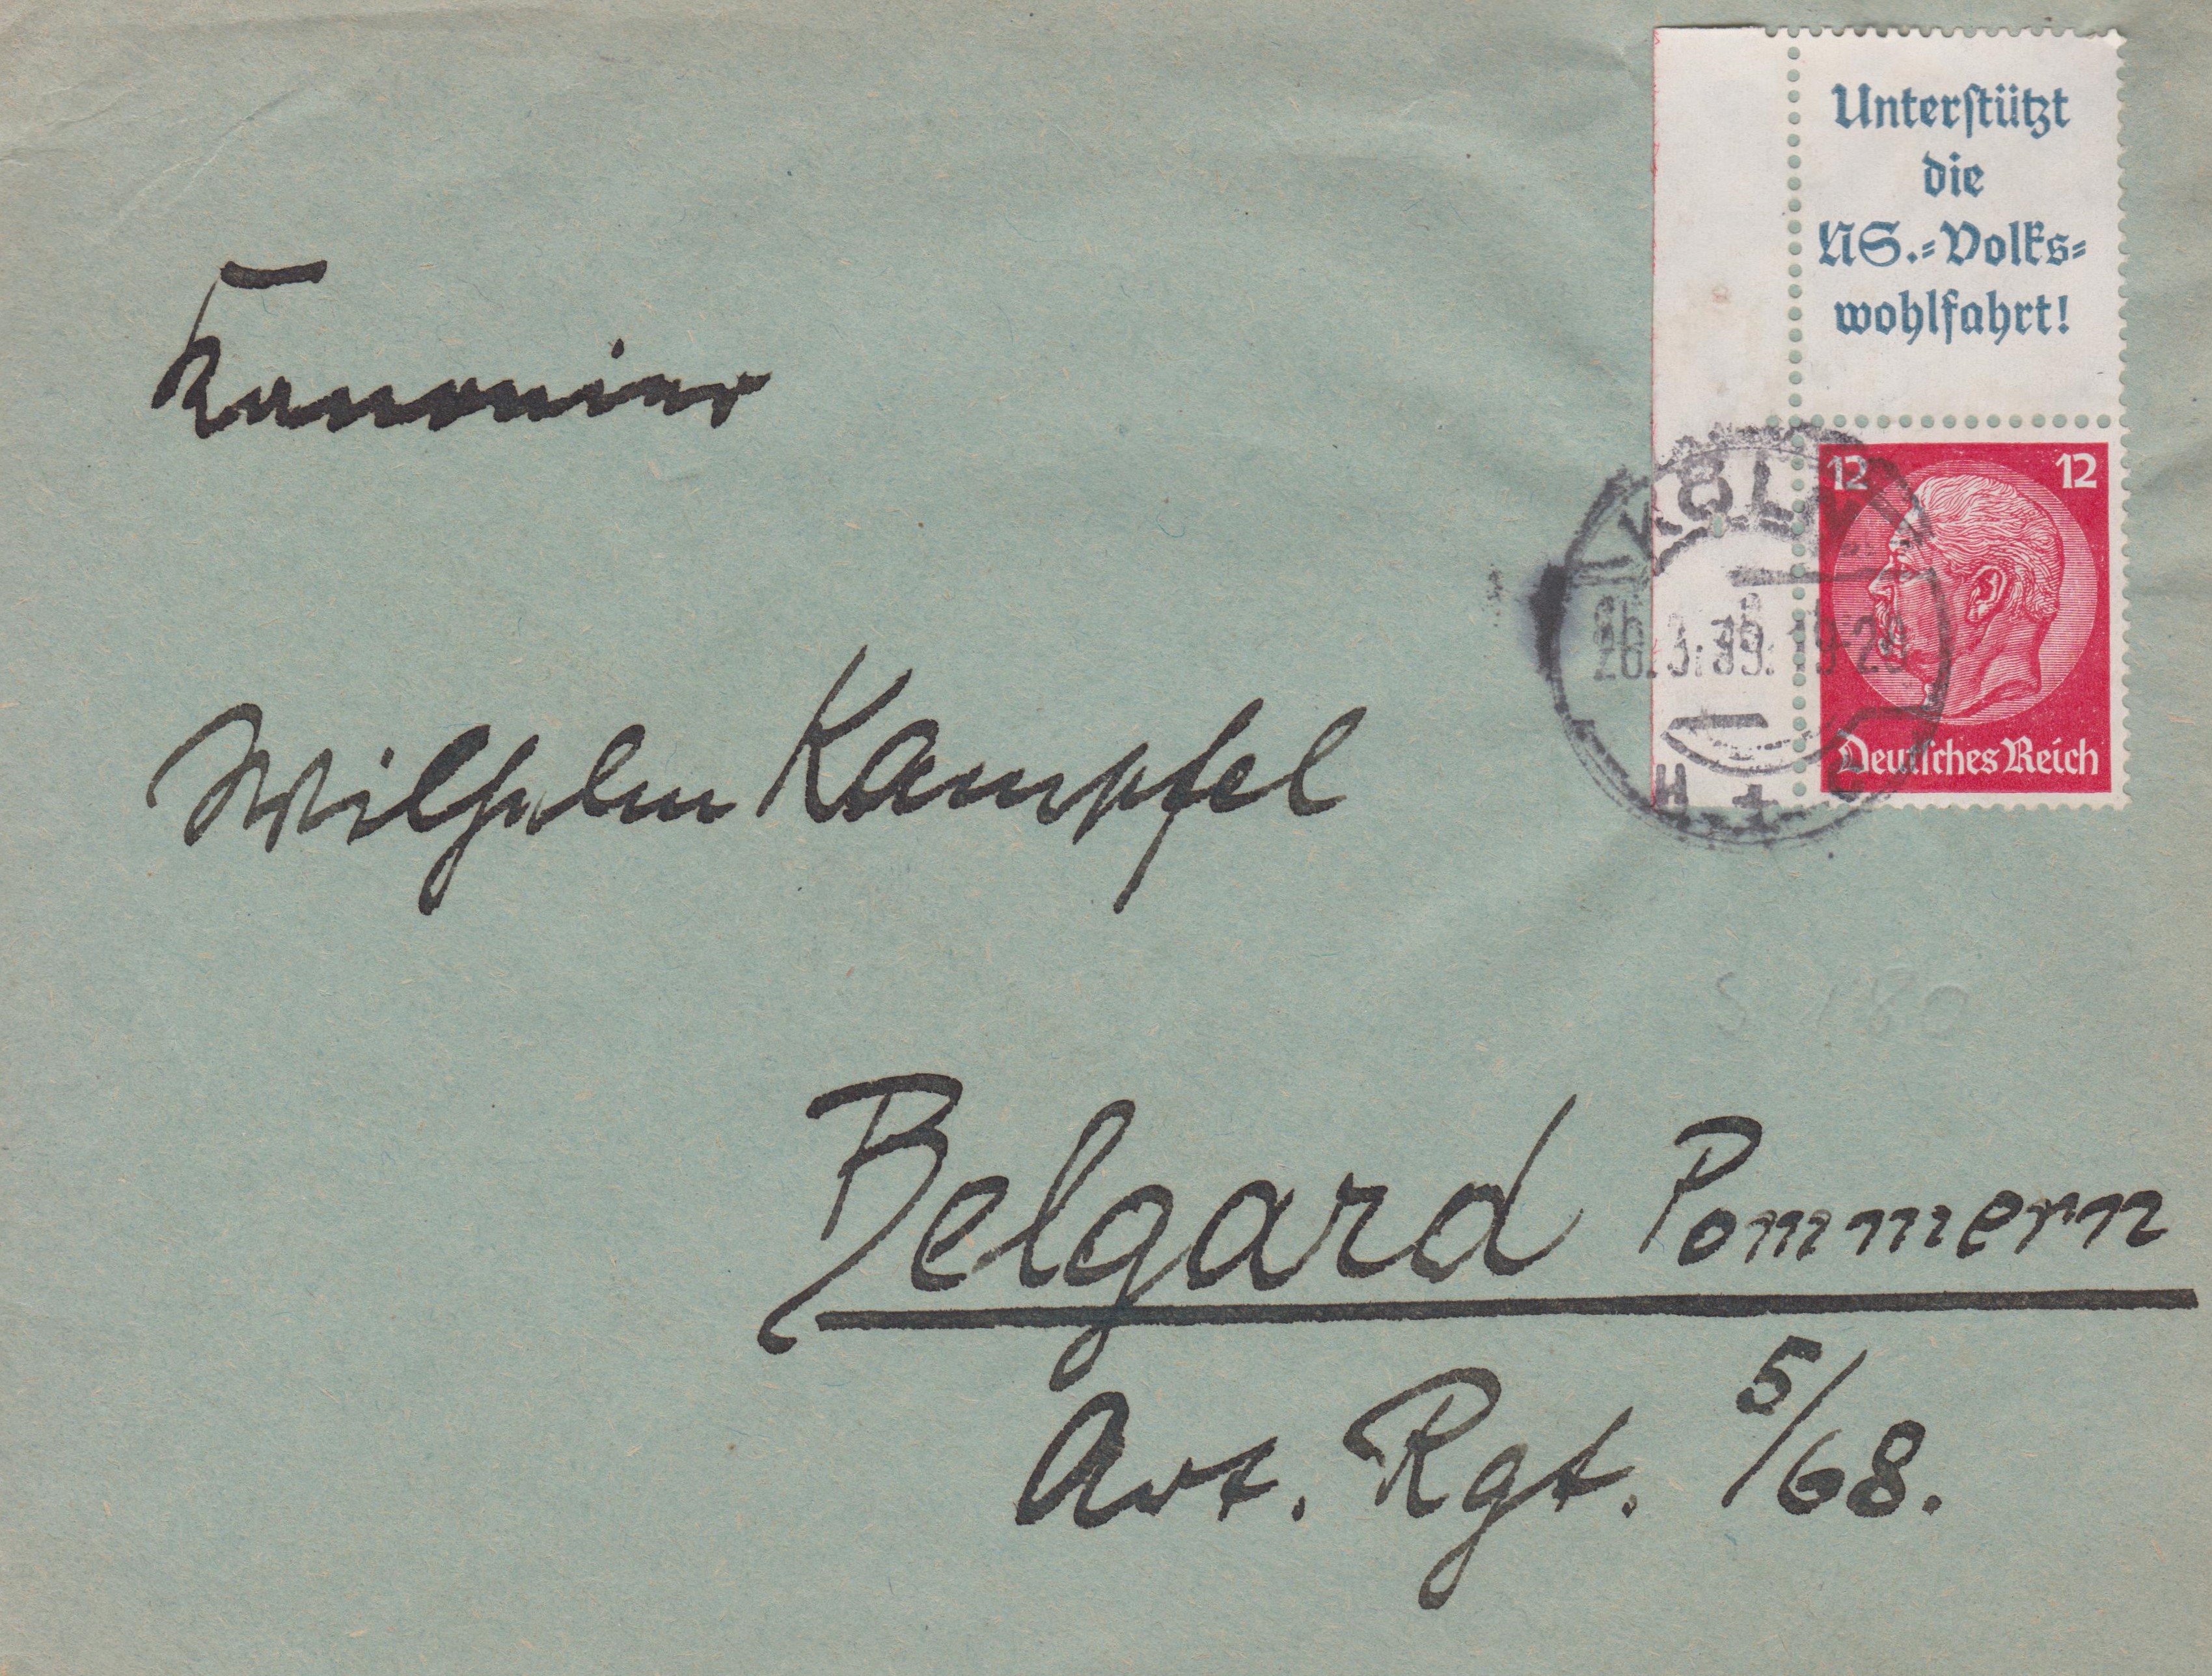 Unterstützt
die
NS.-Volks-
wohlfahrt!
12 12
Deutsches Reich
KÖLN
26.3.39. 19-20
H
Kanonier
Wilhelm Kampfel
Belgard Pommern
Art. Rgt. 5/68.
S 180